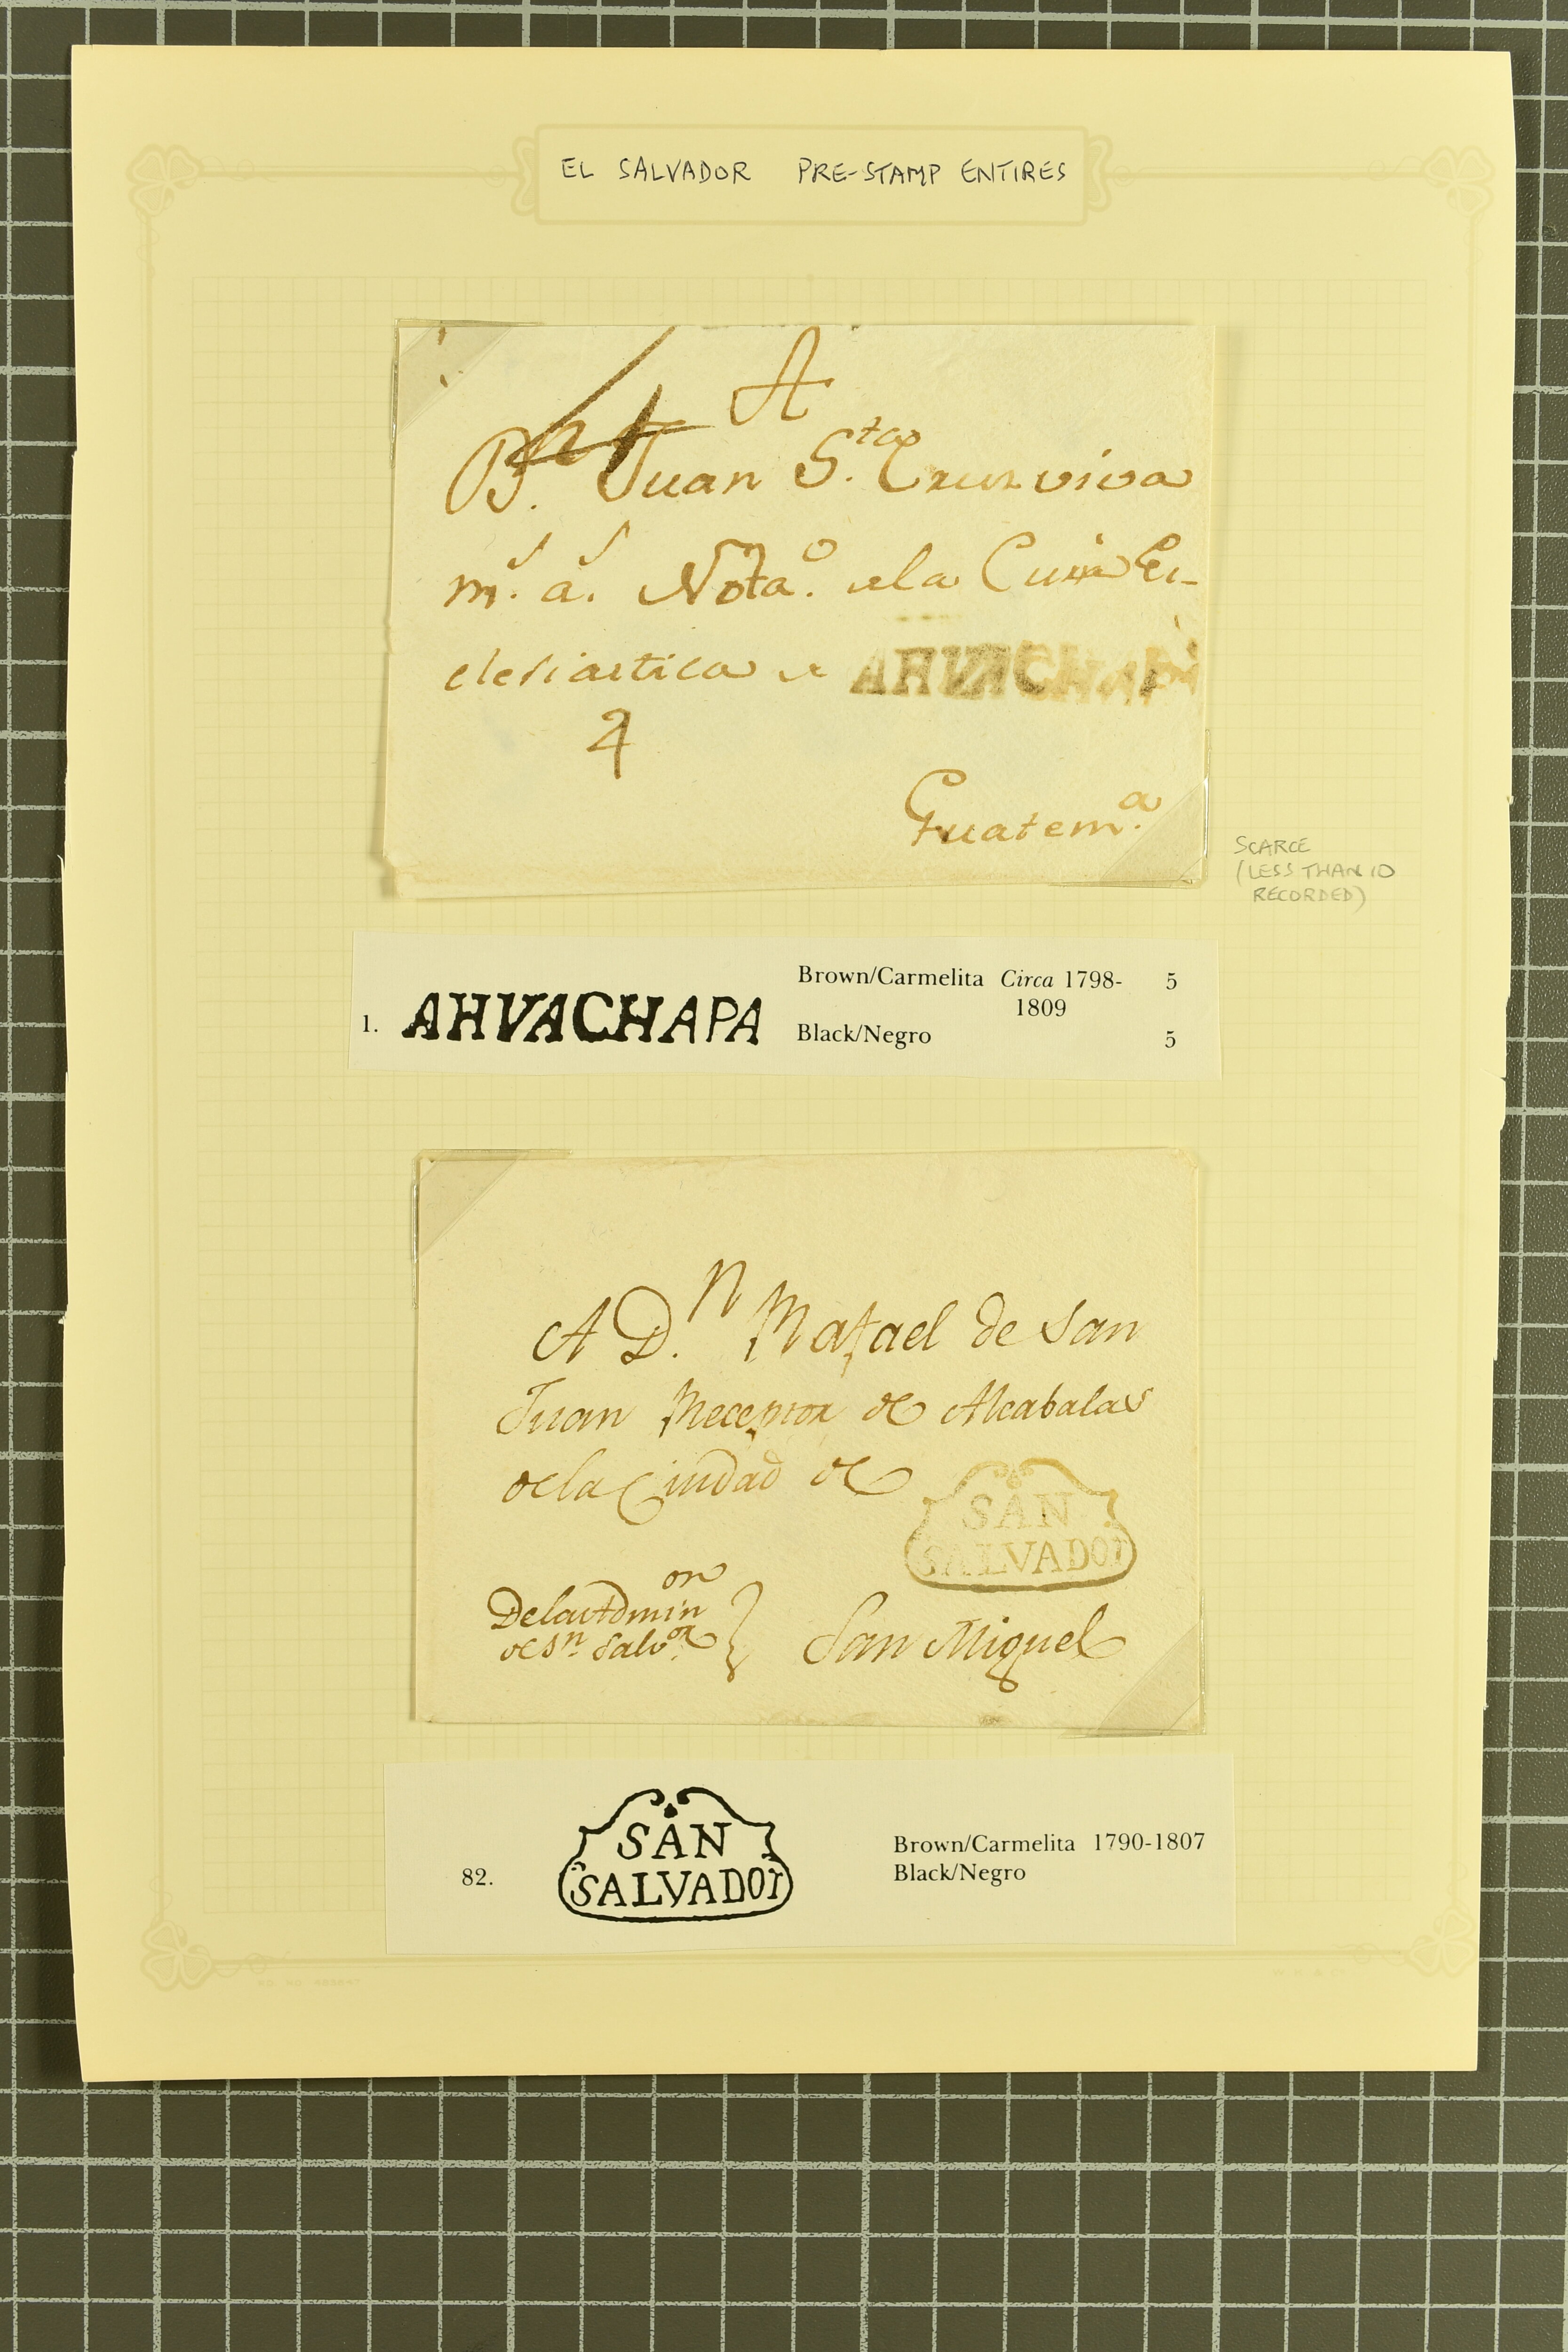 EL SALVADOR PRE-STAMP ENTIRES
A
B.r Juan S.ta Cruz viva
m.s a.s Nota.o de la Curia Ec-
clesiastica de AHVACHAPA
4
Guatem.a
SCARCE
(LESS THAN 10
RECORDED)
1. AHVACHAPA Brown/Carmelita Circa 1798- 5
1809
Black/Negro 5
A D.n Rafael de San
Juan Receptor de Alcabalas
de la Ciudad de
SAN
SALVADOR
De la Admin on
de Sn. Salv.or San Miguel
82. SAN
SALVADOR
Brown/Carmelita 1790-1807
Black/Negro